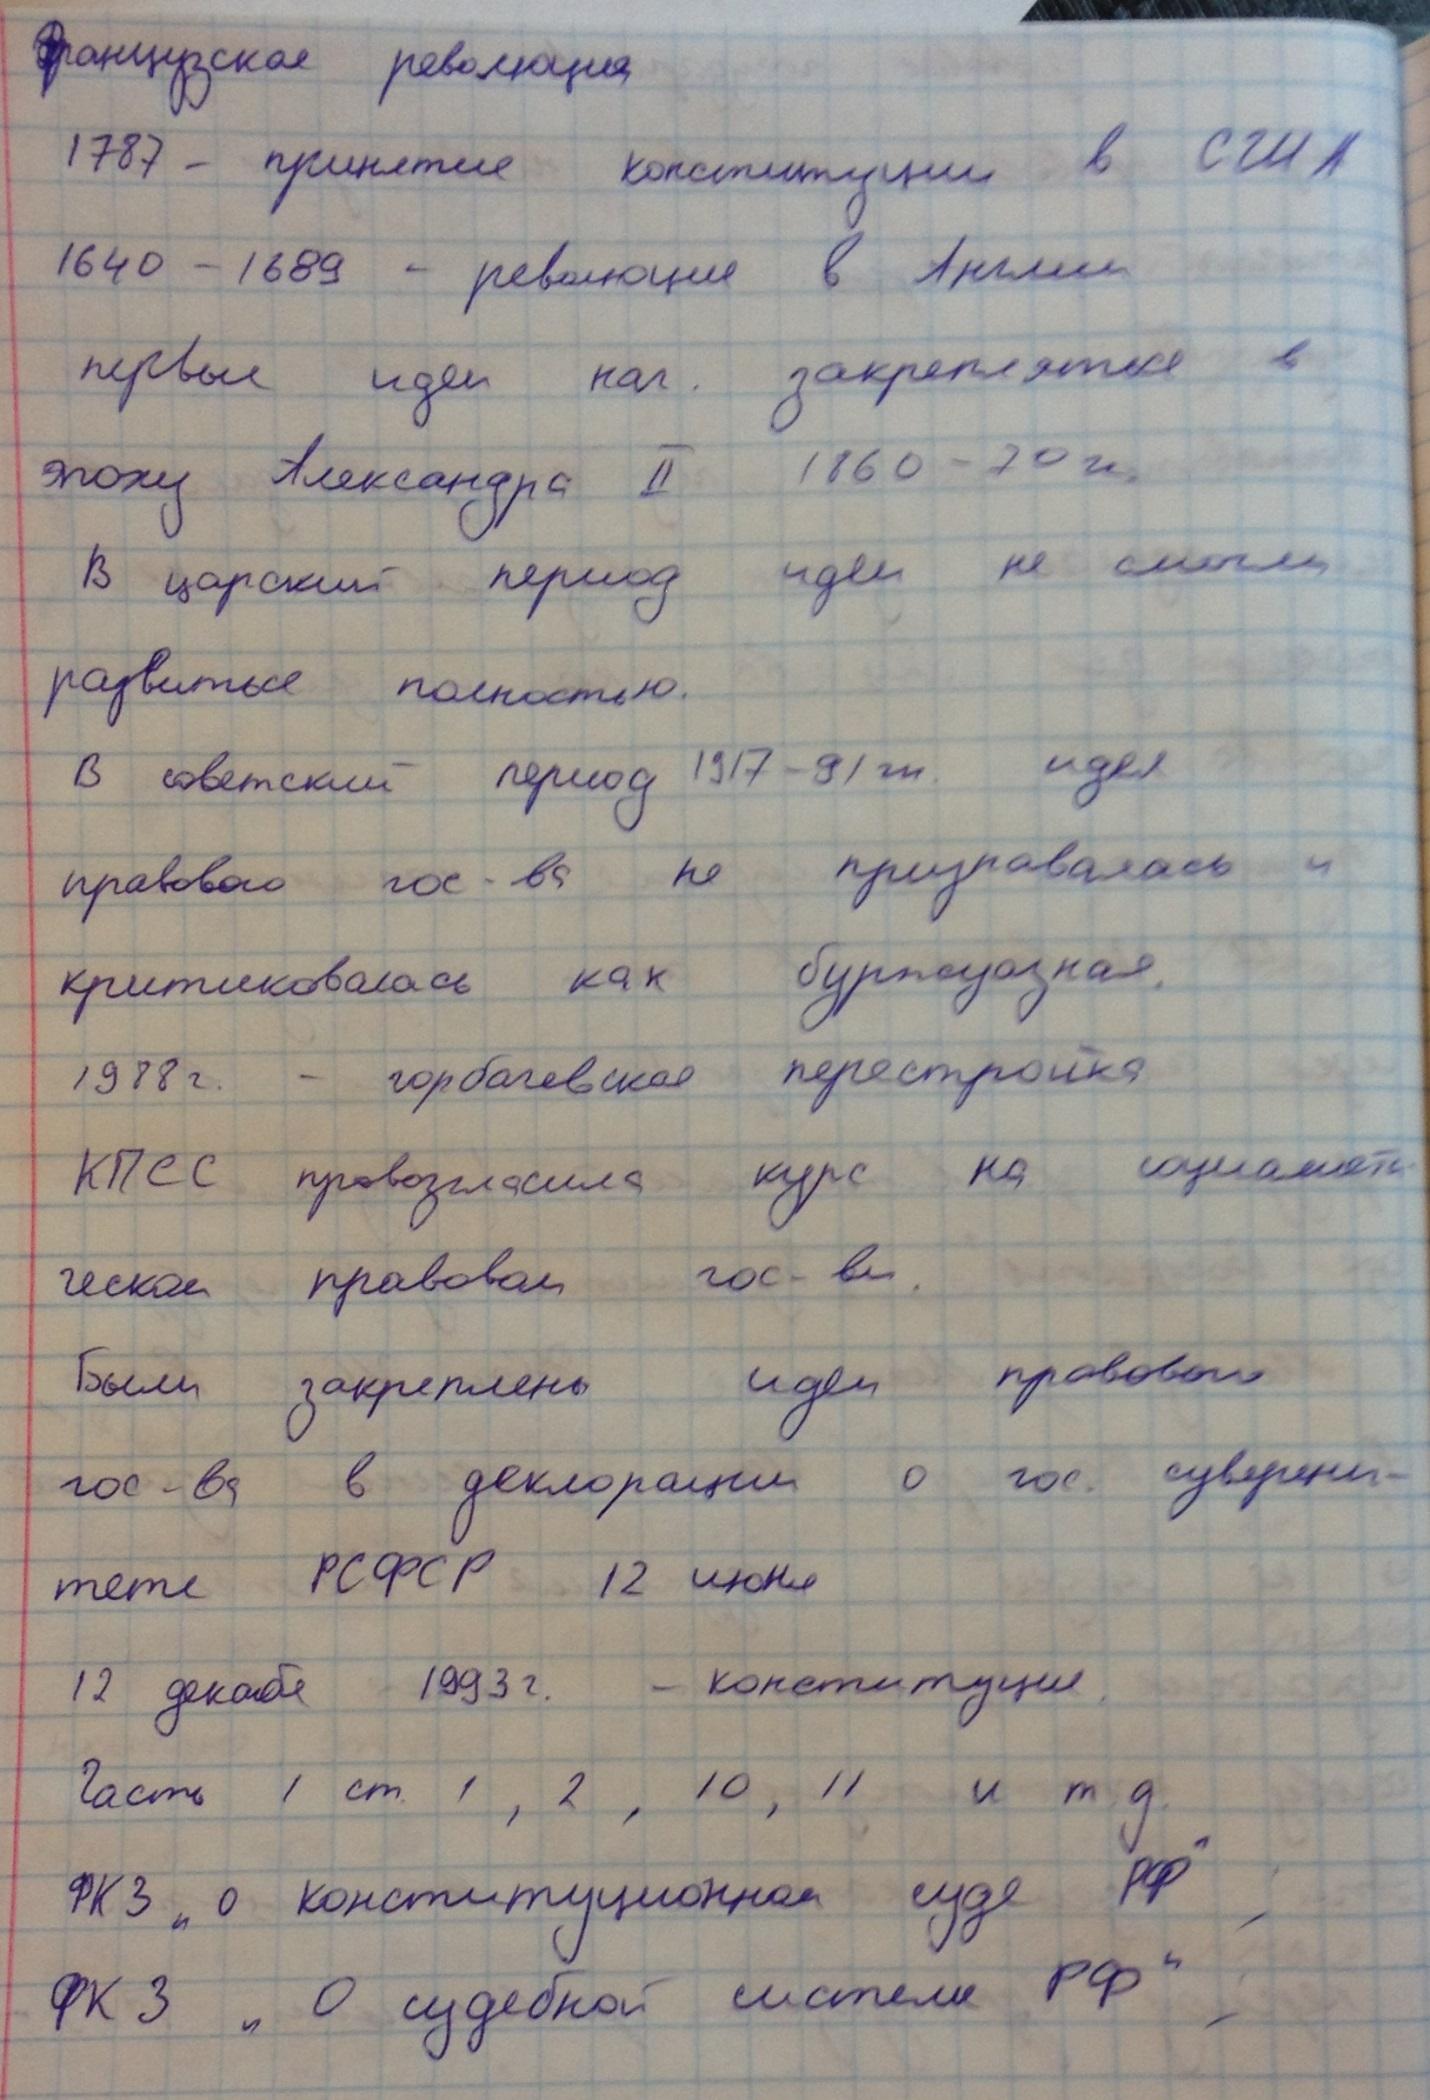 Французская революция
1787 - принятие конституции в США
1640 - 1689 - революция в Англии
первые идеи нач. закрепляться в
эпоху Александра II 1860 - 70 гг.
В царский период идеи не смогли
развиться полностью.
В советский период 1917 - 91 гг. идея
правового гос-ва не признавалась и
критиковалась как буржуазная.
1988 г. - горбачевская перестройка
КПСС провозгласила курс на социалисти
ческом правовом гос-ве.
Были закреплены идеи правового
гос-ва в деклорации о гос. суверени-
тете РСФСР 12 июня
12 декабя 1993 г. - конституция.
Часть 1 ст. 1, 2, 10, 11 и т д.
ФКЗ „о конституционном суде РФ",
ФКЗ „О судебной системе РФ",